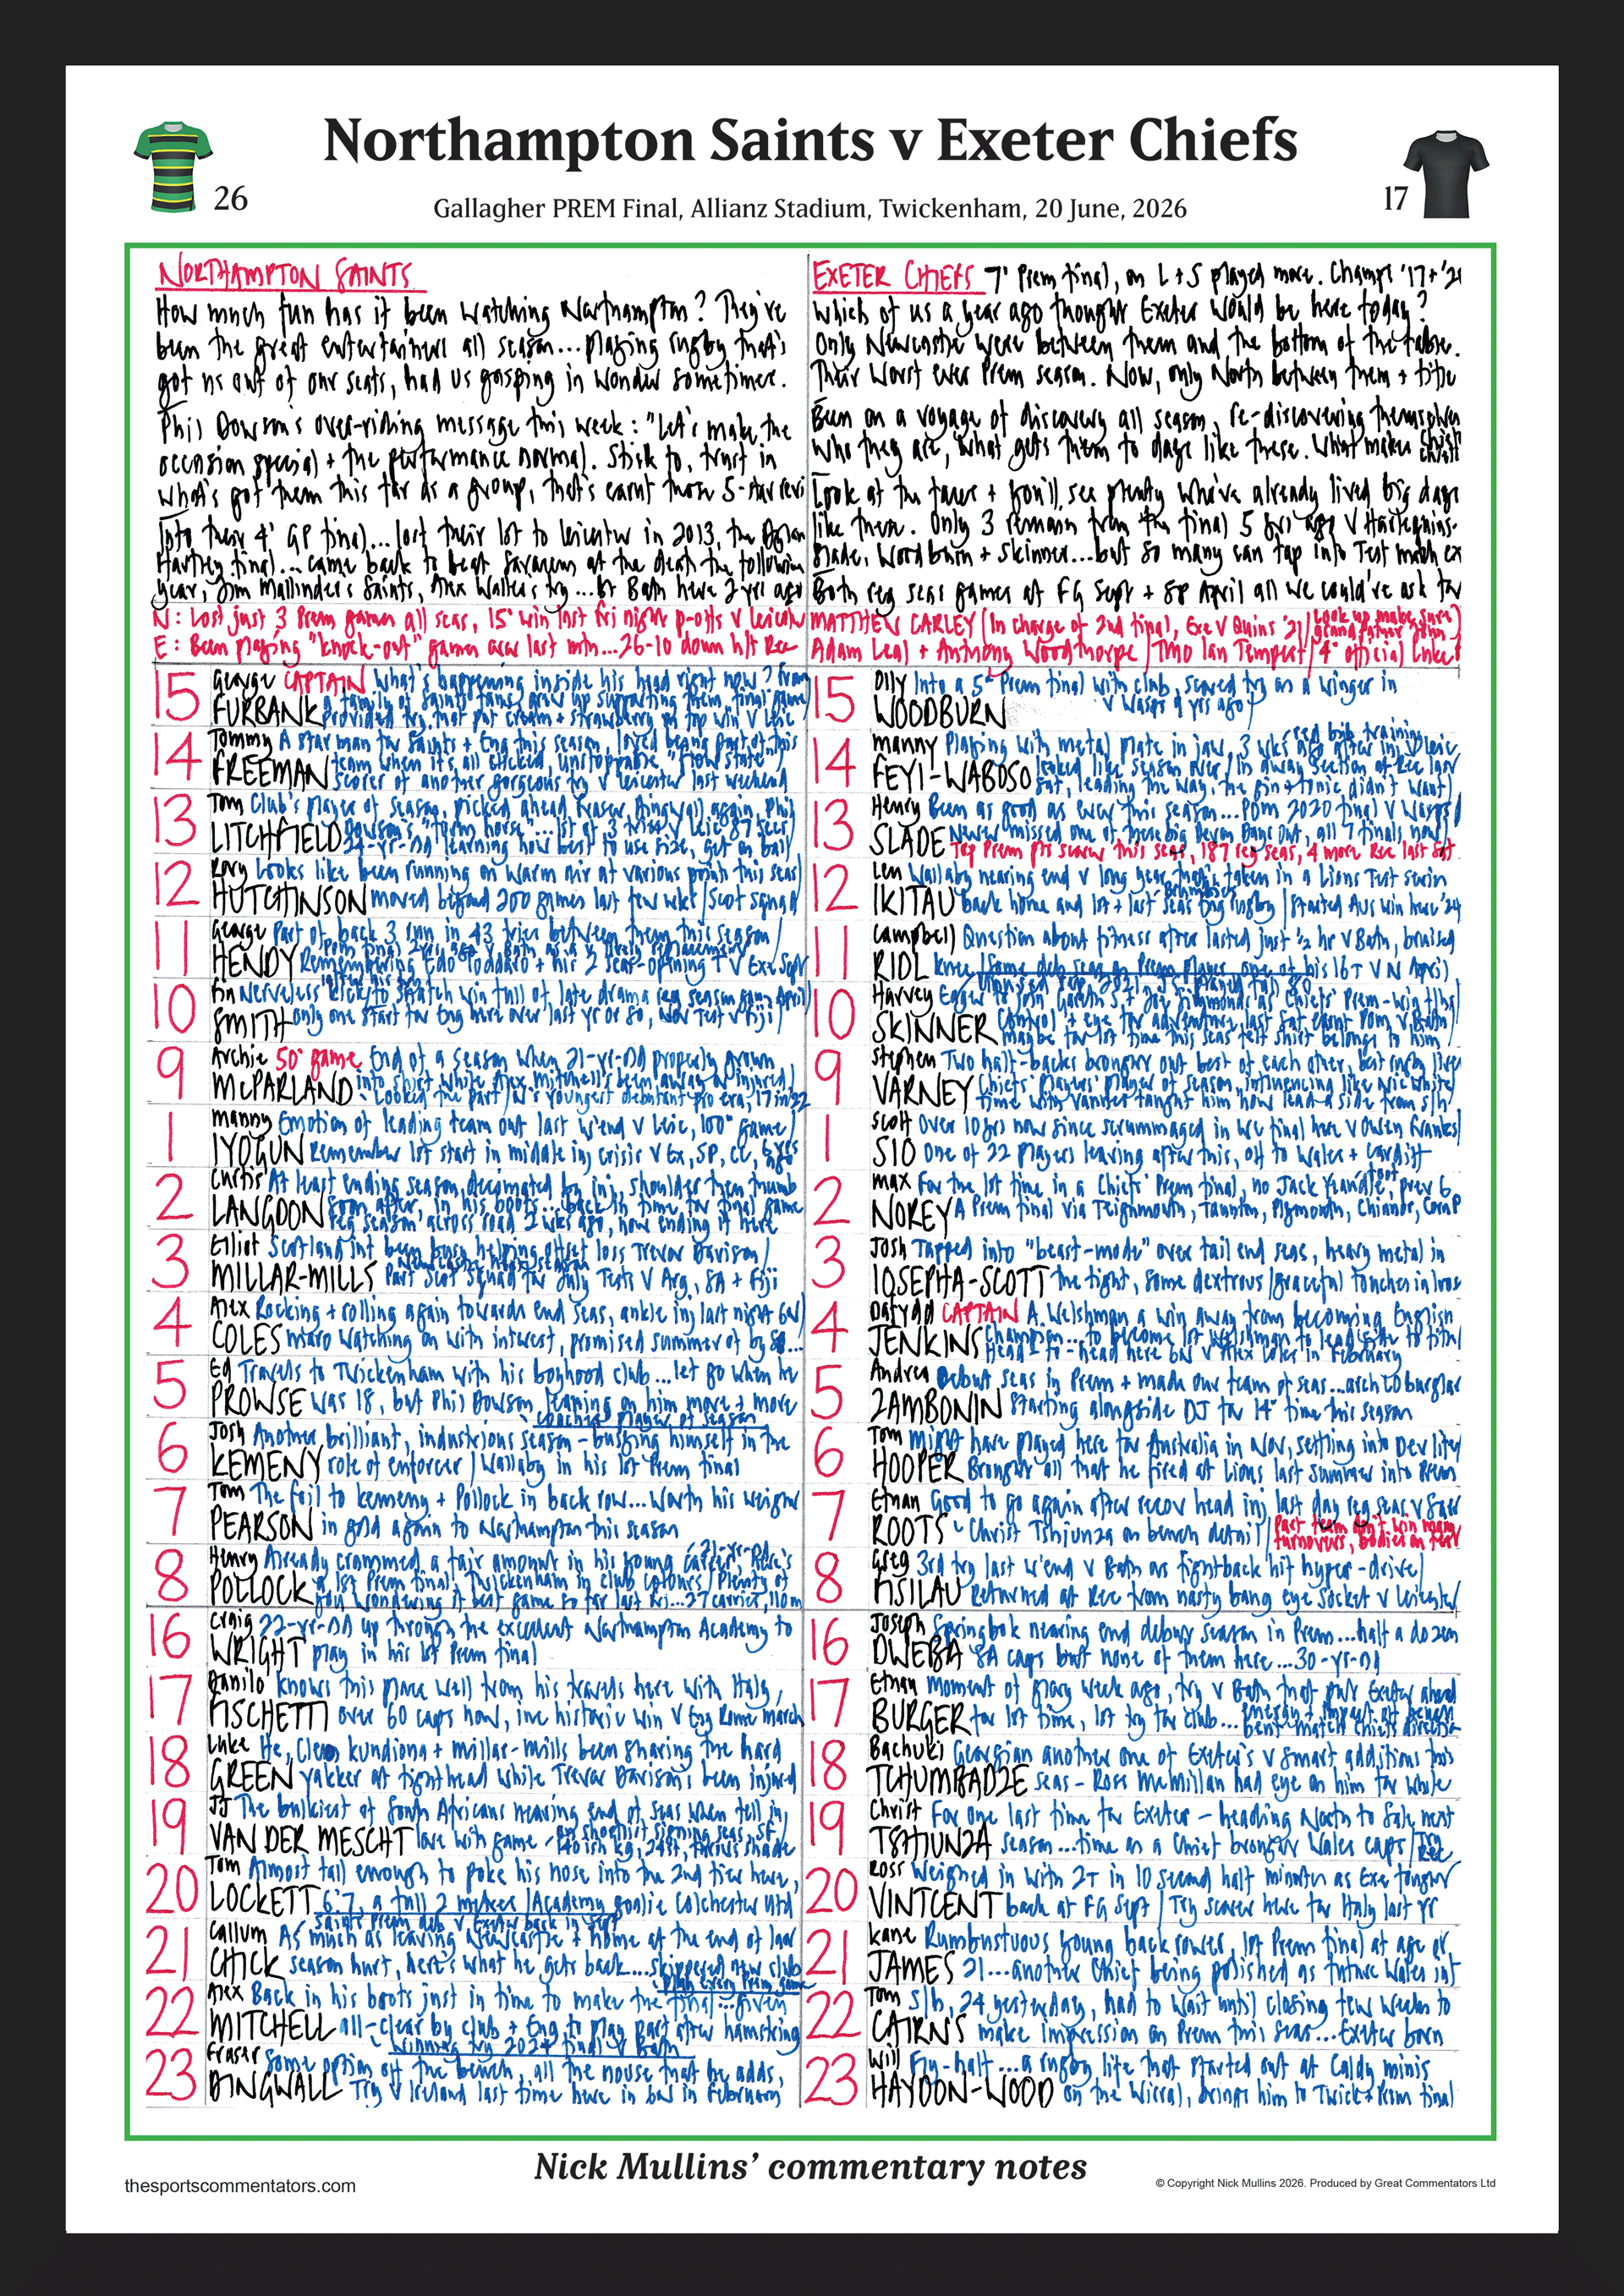 Northampton Saints v Exeter Chiefs
26
17
Gallagher PREM Final, Allianz Stadium, Twickenham, 20 June, 2026
NORTHAMPTON SAINTS
How much fun has it been watching Northampton? They've
been the great entertainers all season... playing rugby that's
got us out of our seats, had us gasping in wonder sometimes.
Phil Dowson's over-riding message this week: "Let's make the
occasion special + the performance normal. Stick to, trust in
what's got them this far as a group, that's earnt them 5-star revi
Into their 4' GP final... lost their 1st to Leicester in 2013, the Dylan
Hartley final... came back to beat Saracens at the death the following
year, Jim Mallinder's Saints, Alex Waller's try... Bt Bath here 2 yrs ago
N: Lost just 3 Prem games all seas, 15' win last fri night p-offs v Leices
E: Been playing "knock-out" games over last mth... 26-10 down h/t Rec
EXETER CHIEFS 7' Prem final, on L+S played more. Champs '17+'20
Which of us a year ago thought Exeter would be here today?
Only Newcastle were between them and the bottom of the table.
Their worst ever Prem season. Now, only North between them + title
Been on a voyage of discovery all season, re-discovering themselves
Who they are, what gets them to days like these. What makes Chiefs Chiefs
Look at the faces + you'll see plenty who've already lived big days
like them. Only 3 remain from the final 5 yrs ago v Harlequins.
Slade, Woodburn + Skinner... but so many can tap into Test match ex
Both reg seas games at FG Sept + SP April all we could've ask for
MATTHEW CARLEY (In charge of 2nd final, Exe v Quins '21)
Adam Leal + Anthony Woodthorpe/Tmo Ian Tempest/4' official Luke
15 George CAPTAIN What's happening inside his head right now? From
FURBANK a family of Saints fans, grew up supporting them, final game
provided try that put cream + strawberry on top win v Leic
14 Tommy A star man for Saints + Eng this season, loved being part of this
FREEMAN team when it's all clicked, unstoppable, "flow state"
scorer of another gorgeous try v Leicester last weekend
13 Tom Club's player of season, picked ahead Fraser Dingwall again, Phil
LITCHFIELD Dowson's "form horse"... 1st of 3 tries v Leic 87 secs
24-yr-old learning how best to use size, get on ball
12 Rory Looks like been running on warm air at various points this seas
HUTCHINSON moved beyond 200 games last few wks/Scot squad
11 George Part of back 3 run in 43 tries between them this season
HENDY Remembering Edo Todaro + his 2 seas-opening T v Exe Sept
10 Fin Nerveless kick to snatch win full of late drama reg season game April
SMITH only one start for Eng here over last yr or so, Nov Test v Fiji
9 Archie 50' game End of a season when 21-yr-old properly grown
McPARLAND into shirt while Alex Mitchell's been away or injured
Looked the part/N's youngest debutant pro era, 17 in '22
1 Manny Emotion of leading team out last w'end v Leic, 100' game
IYOGUN Remember 1st start in middle inj crisis v Ex, SP, CC, 6 yrs ago
2 Curtis At least ending season, decimated by inj, shoulder then thumb
LANGDON soon after, in his boots... back in time for final game
reg season across road 2 wks ago, now ending it here
3 Elliot Scotland int been busy helping offset loss Trevor Davison
MILLAR-MILLS Part Scot squad for July Tests v Arg, SA + Fiji
4 Alex Rocking + rolling again towards end seas, ankle inj last night 6N
COLES Maro watching on with interest, promised summer of
5 Ed Travels to Twickenham with his boyhood club... let go when he
PROWSE was 18, but Phil Dowson leaning on him more + more
coaches player of season
6 Josh Another brilliant, industrious season - busying himself in the
KEMENY role of enforcer/Wallaby in his 1st Prem final
7 Tom The foil to Kemeny + Pollock in back row... Worth his weight
PEARSON in gold again to Northampton this season
8 Henry Already crammed a fair amount in his young career, 21-yr-old, here's
POLLOCK a 1st Prem final, Twickenham in club colours/Plenty of
you wondering if best game so far last Fri... 27 carries, 110m
16 Craig 22-yr-old up through the excellent Northampton Academy to
WRIGHT play in his 1st Prem final
17 Danilo knows this place well from his travels here with Italy,
FISCHETTI over 60 caps now, inc historic win v Eng Rome March
18 Luke He, Cleo Kundiona + Millar-Mills been sharing the hard
GREEN yakker at tighthead while Trevor Davison's been injured
19 JJ The bulkiest of South Africans nearing end of seas when fell in
VAN DER MESCHT love with game
20 Tom Almost tall enough to poke his nose into the 2nd tier here,
LOCKETT 6'7, a full 2 metres/Academy goalie Colchester Utd
Saints Prem deb v Exeter back in Sept
21 Callum As much as leaving Newcastle + home at the end of last
CHICK season hurt, here's what he gets back... skippered new club
Play every Prem game
22 Alex Back in his boots just in time to make the final... given
MITCHELL all-clear by club + Eng to play part after hamstring
Winning try 2024 final v Bath
23 Fraser Some option off the bench, all the nouse that he adds,
DINGWALL Try v Ireland last time here in 6N in February
15 Olly Into a 5' Prem final with club, scored try as a winger in
WOODBURN v Wasps 9 yrs ago
14 Manny Playing with metal plate in jaw, 3 wks ago after inj v Leic
FEYI-WABOSO looked like season over/In away section at Rec last
Sat, leading the way, the gin + tonic didn't want
13 Henry Been as good as ever this season... POM 2020 final v Wasps
SLADE Never missed one of these big Devon Days Out, all 7 finals now
Top Prem pts scorer this seas, 187 reg seas, 4 more Rec last Sat
12 Len Wallaby nearing end v long year that's taken in a Lions Test series
IKITAU back home and 1st + last seas Eng rugby/Started Aus win here '24
11 Campbell Question about fitness after lasted just ½ hr v Bath, bruised
RIDL knee/Some deb seas as Prem player, one of his 16T v N April
10 Harvey
SKINNER Control + eye for adventure last Sat earnt POM v Bath
maybe for 1st time this seas felt shirt belongs to him
9 Stephen Two half-backs brought out best of each other, best rugby lives
VARNEY Chiefs' Players' Player of season, influencing like Nic White
Time with Vannes taught him how lead a side from s/h
1 Scott Over 10 yrs now since scrummaged in WC final here v Owen Franks
SIO One of 22 players leaving after this, off to Wales + Cardiff
2 Max For the 1st time in a Chiefs' Prem final, no Jack Yeandle, prev 6
NOREY A Prem final via Teignmouth, Taunton, Plymouth, Chinnor, Corn P
3 Josh Tapped into "beast-mode" over tail end seas, heavy metal in
IOSEFA-SCOTT the tight, some dextrous/graceful touches in loose
4 Dafydd CAPTAIN A Welshman a win away from becoming English
JENKINS champion... to become 1st Welshman to lead side to title
Head-to-head here 6N v Alex Coles in February
5 Andrea Debut seas in Prem + made our team of seas... arch LO burglar
ZAMBONIN Starting alongside DJ for 14' time this season
6 Tom might have played here for Australia in Nov, settling into Dev life
HOOPER Brought all that he fired at Lions last summer into Prem
7 Ethan Good to go again after recov head inj last day reg seas v Sarr
ROOTS Christ Tshiunza on bench detail/Part team don't win many
turnovers, bodies on feet
8 Greg 3rd try last w'end v Bath as fightback hit hyper-drive
FISILAU Returned at Rec from nasty bang eye socket v Leicester
16 Joseph Springbok nearing end debut season in Prem... half a dozen
DWEBA SA caps but none of them here... 30-yr-old
17 Ethan Moment of glory week ago, try v Bath that put Exeter ahead
BURGER for 1st time, 1st try for club... energy + impact off bench
bent match Chiefs direction
18 Bachuki Georgian another one of Exeter's v smart additions this
TCHUMBADZE seas - Ross McMillan had eye on him for while
19 Christ For one last time for Exeter - heading North to Sale next
TSHIUNZA season... time as a Chief brought Wales caps/Try Rec
20 Ross Weighed in with 2T in 10 second half minutes as Exe fought
VINTCENT back at FG Sept/Try scorer here for Italy last yr
21 Kane Rumbustuous young back rower, 1st Prem final at age of
JAMES 21... another Chief being polished as future Wales int
22 Tom s/h, 24 yesterday, had to wait until closing few weeks to
CAIRNS make impression on Prem this seas... Exeter born
23 Will Fly-half... a rugby life that started out at Caldy minis
HAYDON-WOOD on the Wirral, brings him to Twick + Prem final
Nick Mullins' commentary notes
thesportscommentators.com
© Copyright Nick Mullins 2026. Produced by Great Commentators Ltd